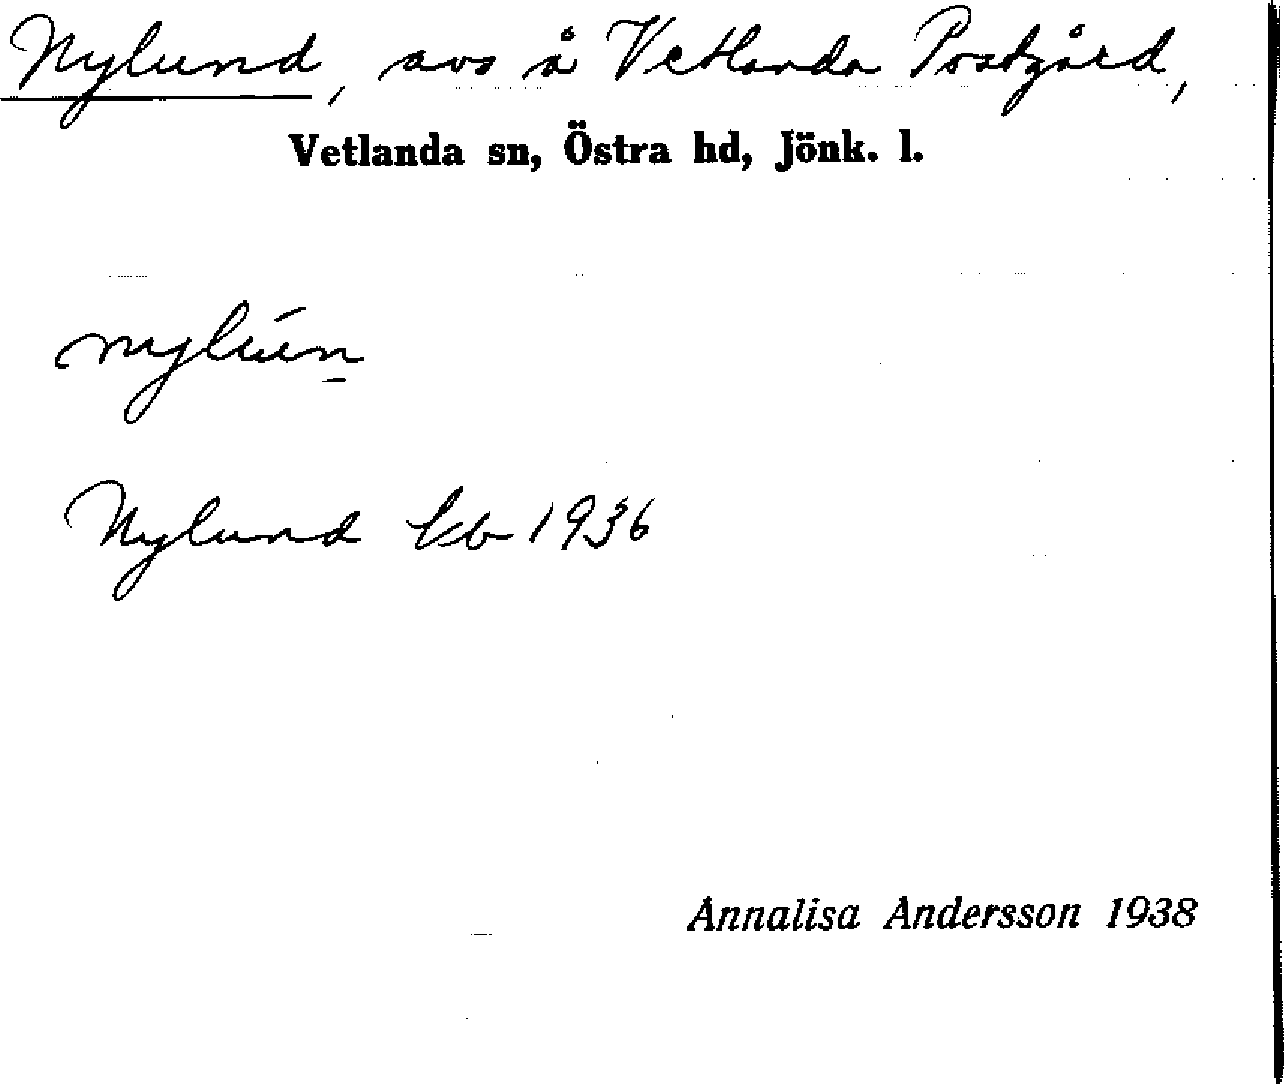 Nylund, avs å Vetlanda Postgård,
Vetlanda sn, Östra hd, Jönk. l.
nylún
Nylund kb 1936
Annalisa Andersson 1938